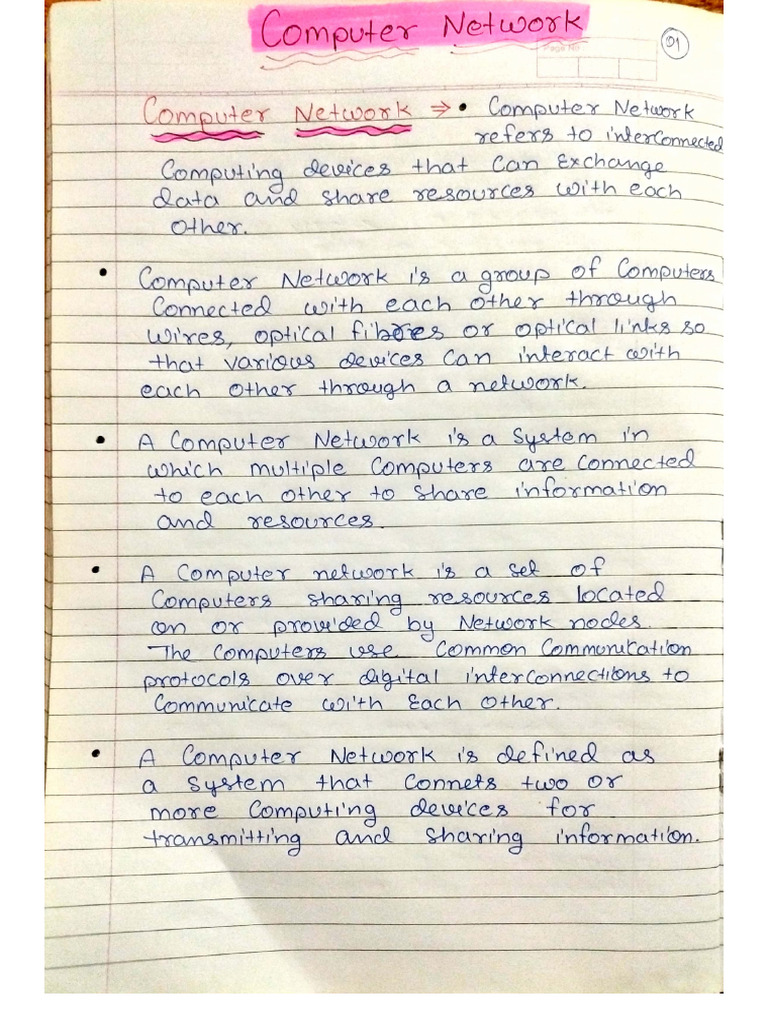 Computer Network
01
Page No
Computer Network ⇒ • Computer Network
refers to interconnected
Computing devices that can Exchange
data and share resources with each
other.
• Computer Network is a group of Computers
Connected with each other through
wires, optical fibres or optical links so
that various devices can interact with
each other through a network.
• A Computer Network is a System in
which multiple Computers are connected
to each other to share information
and resources.
• A Computer network is a set of
Computers sharing resources located
on or provided by Network nodes.
The Computers use Common Communication
protocols over digital interconnections to
Communicate with Each other.
• A Computer Network is defined as
a system that Connets two or
more Computing devices for
transmitting and sharing information.